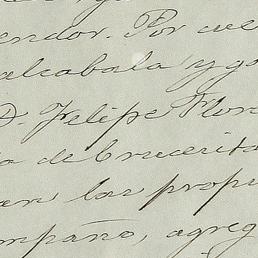 endor. Por
alcabala y
D. Felipe Flor
de Crucerita
an las propi
mpaño, agreg